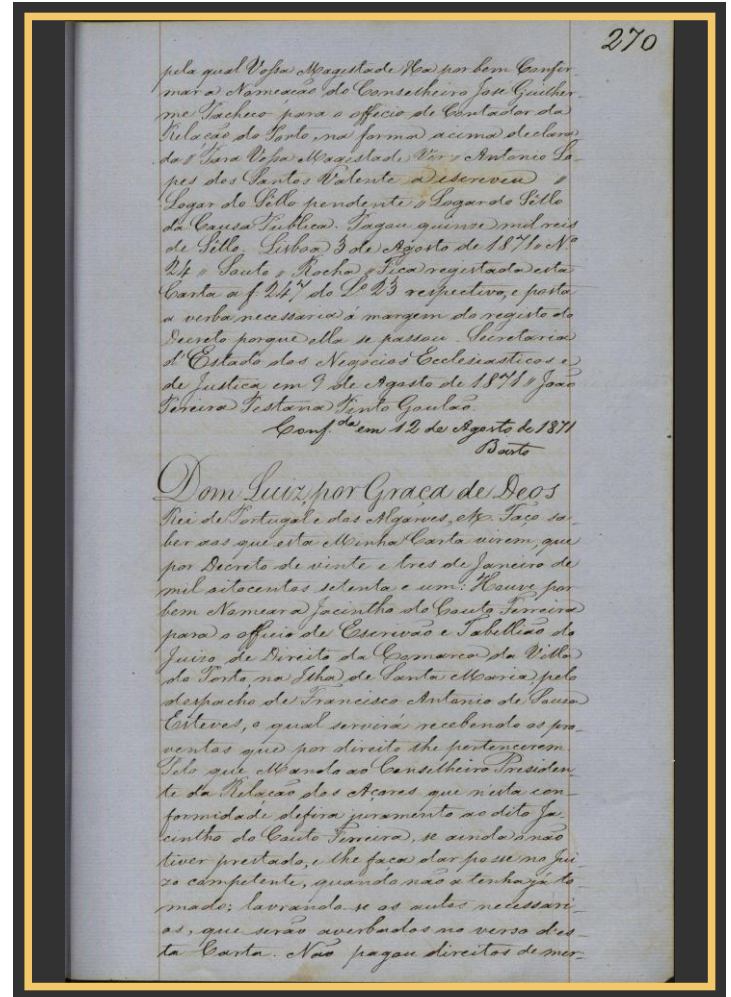 270
pela qual Vossa Magestade Ha por bem Confir-
mar a Nomeacão do Conselheiro José Guilher-
me Pacheco para o officio de Contador da
Relacão do Porto, na forma acima declara
da // Para Vossa Magestade Vêr // Antonio Lo-
pes dos Santos Valente a escreveu //
Logar do Sêllo pendente // Logar do Sêllo
da Causa Publica. Pagou quinze mil reis
de Sêllo. Lisboa 3 de Agosto de 1871 // Nº
24 // Souto // Rocha // Fica registada esta
Carta a f. 247 do Lº 23 respectivo, e posta
a verba necessaria á margem do registo do
Decreto porque ella se passou. Secretaria
d'Estado dos Negocios Ecclesiasticos e
de Justica em 9 de Agosto de 1871 // João
Pereira Pestana Pinto Goulão.
Conf.da em 12 de Agosto de 1871
Dom Luiz, por Graça de Deos
Rei de Portugal e dos Algarves, &. Faço sa-
ber aos que esta Minha Carta virem, que
por Decreto de vinte e tres de Janeiro de
mil oitocentos setenta e um: Houve por
bem Nomear a Jacintho do Couto Ferreira
para o officio de Escrivão e Tabellião do
Juizo de Direito da Comarca da Villa
do Porto, na Ilha de Santa Maria, pelo
despacho de Francisco Antonio de Sousa
Esteves, o qual servirá recebendo os pro-
ventos que por direito lhe pertencerem.
Pelo que Mando ao Conselheiro Presiden-
te da Relacão dos Açores, que n'esta con-
formidade defira juramento ao dito Ja-
cintho do Couto Ferreira, se ainda o não
tiver prestado, e lhe faca dar posse no Jui-
zo competente, quando não a tenha já to-
mado; lavrando-se os autos necessari-
os, que serão averbados no verso d'es-
ta Carta. Não pagou direitos de mer-